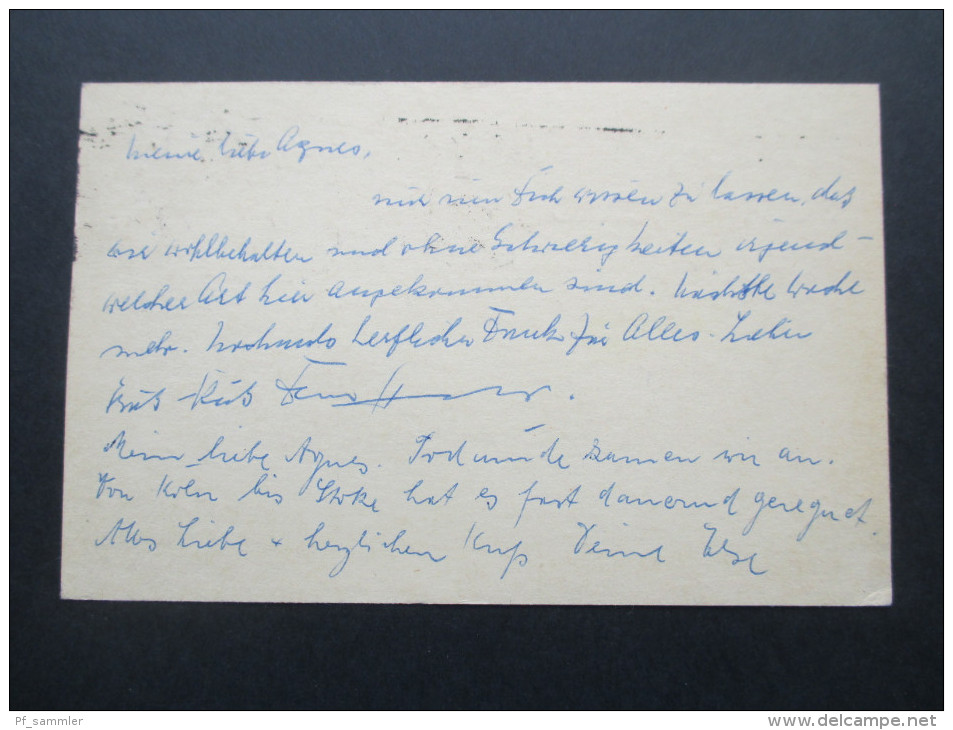 Meine liebe Agnes,
nur um Dich wissen zu lassen, daß
wir wohlbehalten und ohne Schwierigkeiten irgend-
welcher Art hier angekommen sind. Nächste Woche
mehr. Nochmals herzlichen Dank für Alles. Lieben
Gruß Kuß
Meine liebe Agnes. Todmüde kamen wir an.
Von Köln bis Stoke hat es fast dauernd geregnet.
Alles Liebe + herzlichen Kuß Deine Else
Pf_sammler
www.delcampe.net